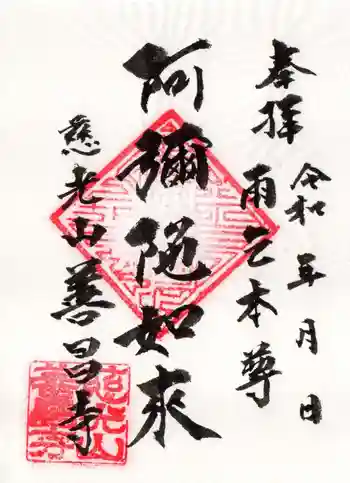 奉拝
令和 年 月 日
雨乞本尊
阿彌陀如来
慈光山
善昌寺